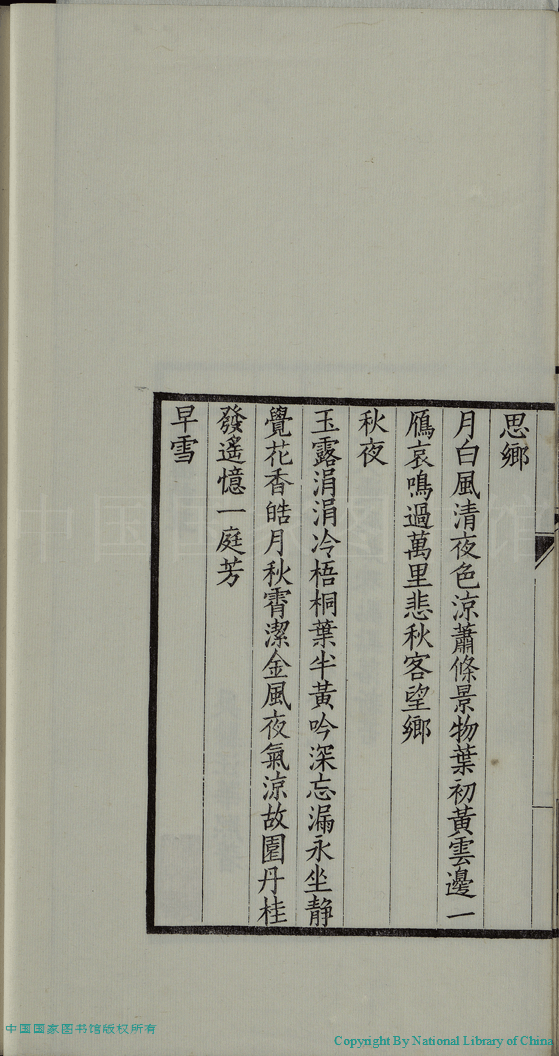 思鄉
月白風清夜色涼蕭條景物葉初黃雲邊一
鴈哀鳴過萬里悲秋客望鄉
秋夜
玉露涓涓冷梧桐葉半黃吟深忘漏永坐静
覺花香皓月秋霄潔金風夜氣涼故園丹桂
發遙憶一庭芳
早雪
中国国家图书馆版权所有
Copyright By National Library of China